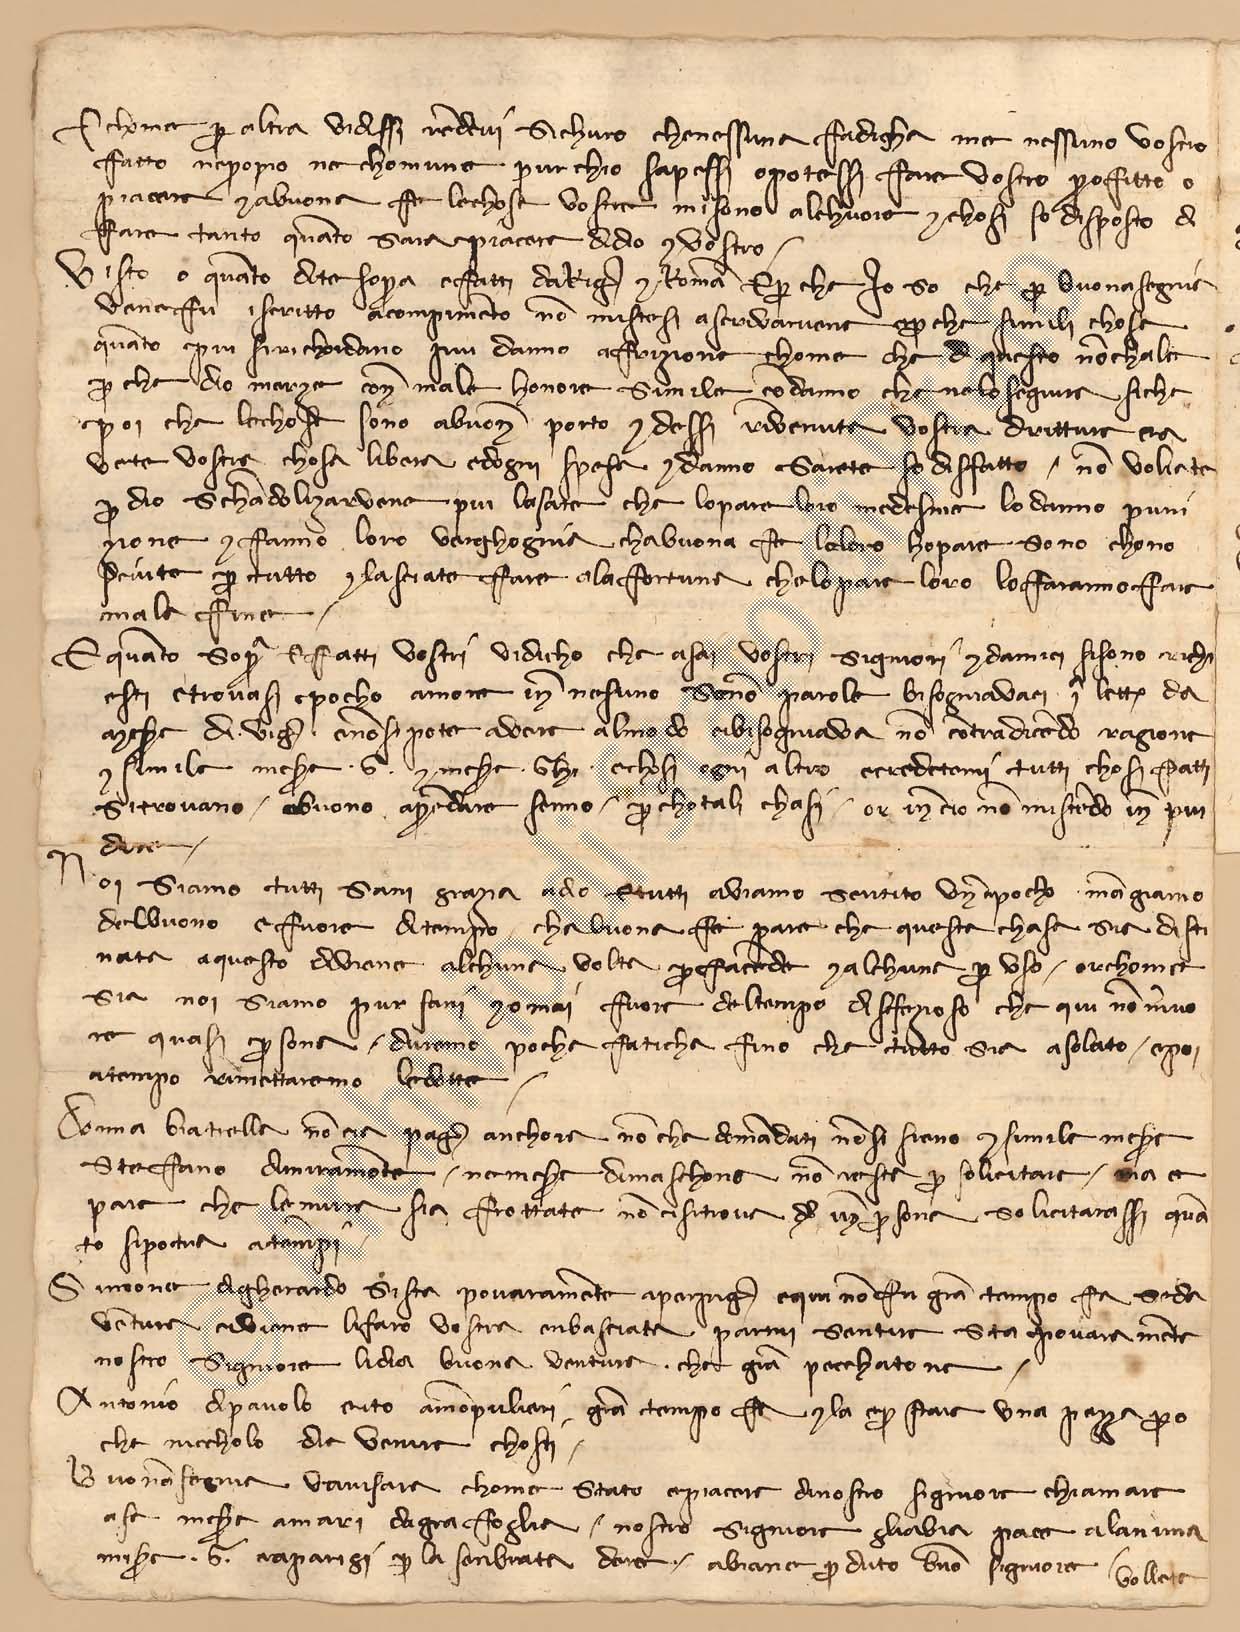 E chome per altra vi dissi rendevi sichuro che nessuna fadigha m'è nessuno vostro
fatto né propio né chomune pur ch'io sapessi o potessi fare vostro profitto o
piacere y a buona fe le chose vostre mi sono al chuore y chosì so disposto di
fare tanto quanto sara piacere di dio y vostro /
Visto o quanto dite sopra e fatti da Righi y Roma E perche Io so che per buonasegnia
ve ne fu iscritto a compimento non mistesi a scrivarvene e perche simili chose
quanto piu si richordano piu danno afrizione chome che di questo non chale
per che dio merze con male honore simile e danno che ne lo seguire siche
poi che le chose sono a buon porto y dessi rivenuta vostra dritture era
verte vostra chosa libera e d'ogni spesa y danno sarete sodisfatto / non voliate
per dio schandolizarvene piu lasate che l'opare loro medesime lo danno puni
zione y fanno loro verghognia ch'a buona fe le loro hopare sono chono
sciute per tutto y lasciate fare a la fortuna che l'opare loro lo faranno fare
male fine /
E quanto sopra E fatti vostri vi dicho che asai vostri signiori y d'amici si sono richi
esti e trovasi pocho amore in nesuno se non parole bisogniavaci i lettera da
messer di Vigni e non si pote avere al modo ci bisogniava non contradicendo ragione
y simile messer .G. y messer .Ghi. e chosi ogni altro e credetemi tutti chosi fatti
si trovano / e buono aprendare senno / per chotali chasi / or in cio non mistendo in piu
dire /
Noi siamo tutti sani grazia a dio E tutti aviamo sentito un pocho mangiamo
del buono e fuore di tempo ch'a buona fe pare che questa chasa sia disti
nata a questo diviene alchuna volta per facende y alchuna per uso / or chome
sia noi siamo pur sani y omai fuore del tempo disetoso che qui non muo
re quasi persona / duremo poche fatiche fino che tutto sia asolato / e poi
a tempo rimettaremo le dotte /
Donna biatrella non era pagata anchora non che dimandati non si sieno y simile messer
Steffano di miramonte / ne messer di maschone non resta per solicitare / ma e
pare che le mura sia frottate non ci si trova di in persona solicitarassi quan
to si potra a tempi
Simone di gherardo si sta povaramente a perpignano e qui non fu gran tempo fa se da
venture ci viene li faro vostra enbasciata parmi sentire sta povaramente
nostro Signiore li dia buona ventura che gran pecchato ne /
Antonio di pavolo ento a monpulieri gran tempo fa y la e per stare una pezza pero
che niccholo die venire chosti /
Buonasegnia v'avisara chome stato e piacere di nostro signiore chiamare
a se messer amari di gra foglia / nostro Signiore gli abia pace a l'anima
messer .G. e a parigi per la senbiata dere / abiane perduto buon signiore / vollete